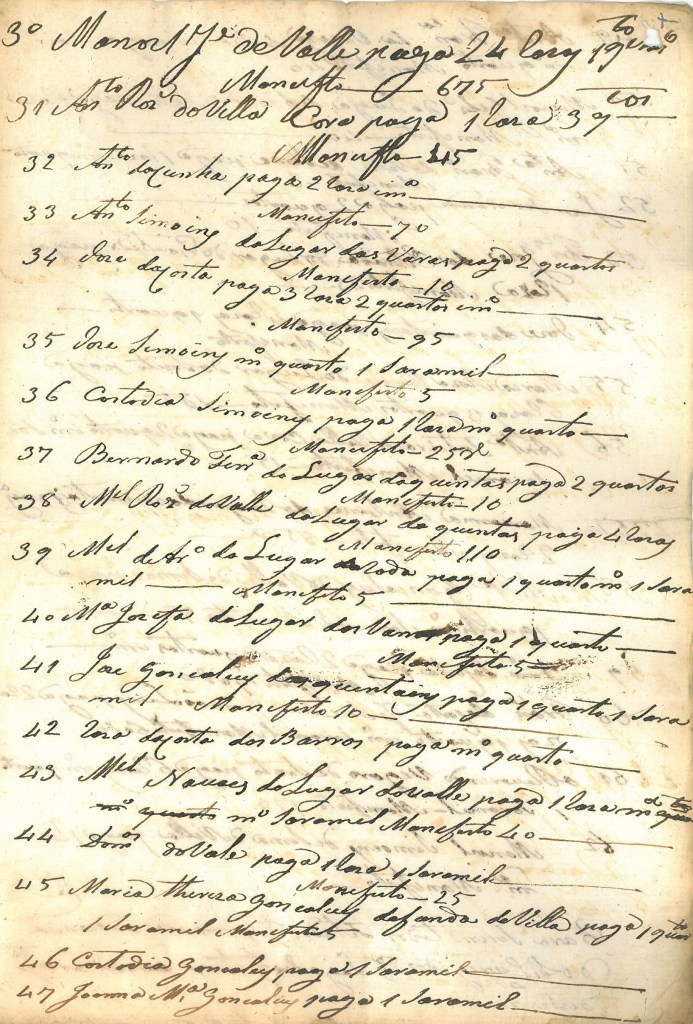 3º Manoel Je do Valle paga 24 Raz
Manifesto 675
31 Anto Roz do Villa Cova paga 1 Raza 3 qtos
Manifesto 45
32 Anto da Cunha paga 2 Raza i mo
Manifesto 70
33 Anto Simoins do Lugar das Varas paga 2 quartos
Manifesto 10
34 Joze da Costa paga 3 Raza 2 quartos i mo
Manifesto 95
35 Joze Simoins mo quarto 1 Saramil
Manifesto 5
36 Costodia Simoens paga 1 Raza mo quarto
Manifesto 25
37 Bernardo Ferra do Lugar da quintas paga 2 quartos
Manifesto 10
38 Mel Roz do Valle do Lugar da quintas paga 4 Razas
Manifesto 110
39 Mel de Aro do Lugar paga 1 quarto mo 1 Sara
mil Manifesto 5
40 Ma Jozefa do Lugar das Varas paga 1 quarto
Manifesto 5
41 Joze Goncalvez das quintains paga 1 quarto 1 Sara
mil Manifesto 10
42 da Costa dos Barros paga mo quarto
43 Mel Navaes do Lugar do Valle paga 1 Raza mo
mo quarto mo Saramil Manifesto 40
44 Domos do Vale paga 1 Raza 1 Saramil
Manefesto 25
45 Maria Thereza Goncalvez do fundo de Villa paga 1 qto
1 Saramil Manefesto 5
46 Costodia Goncalvez paga 1 Saramil
47 Joanna Ma Goncalvez paga 1 Saramil